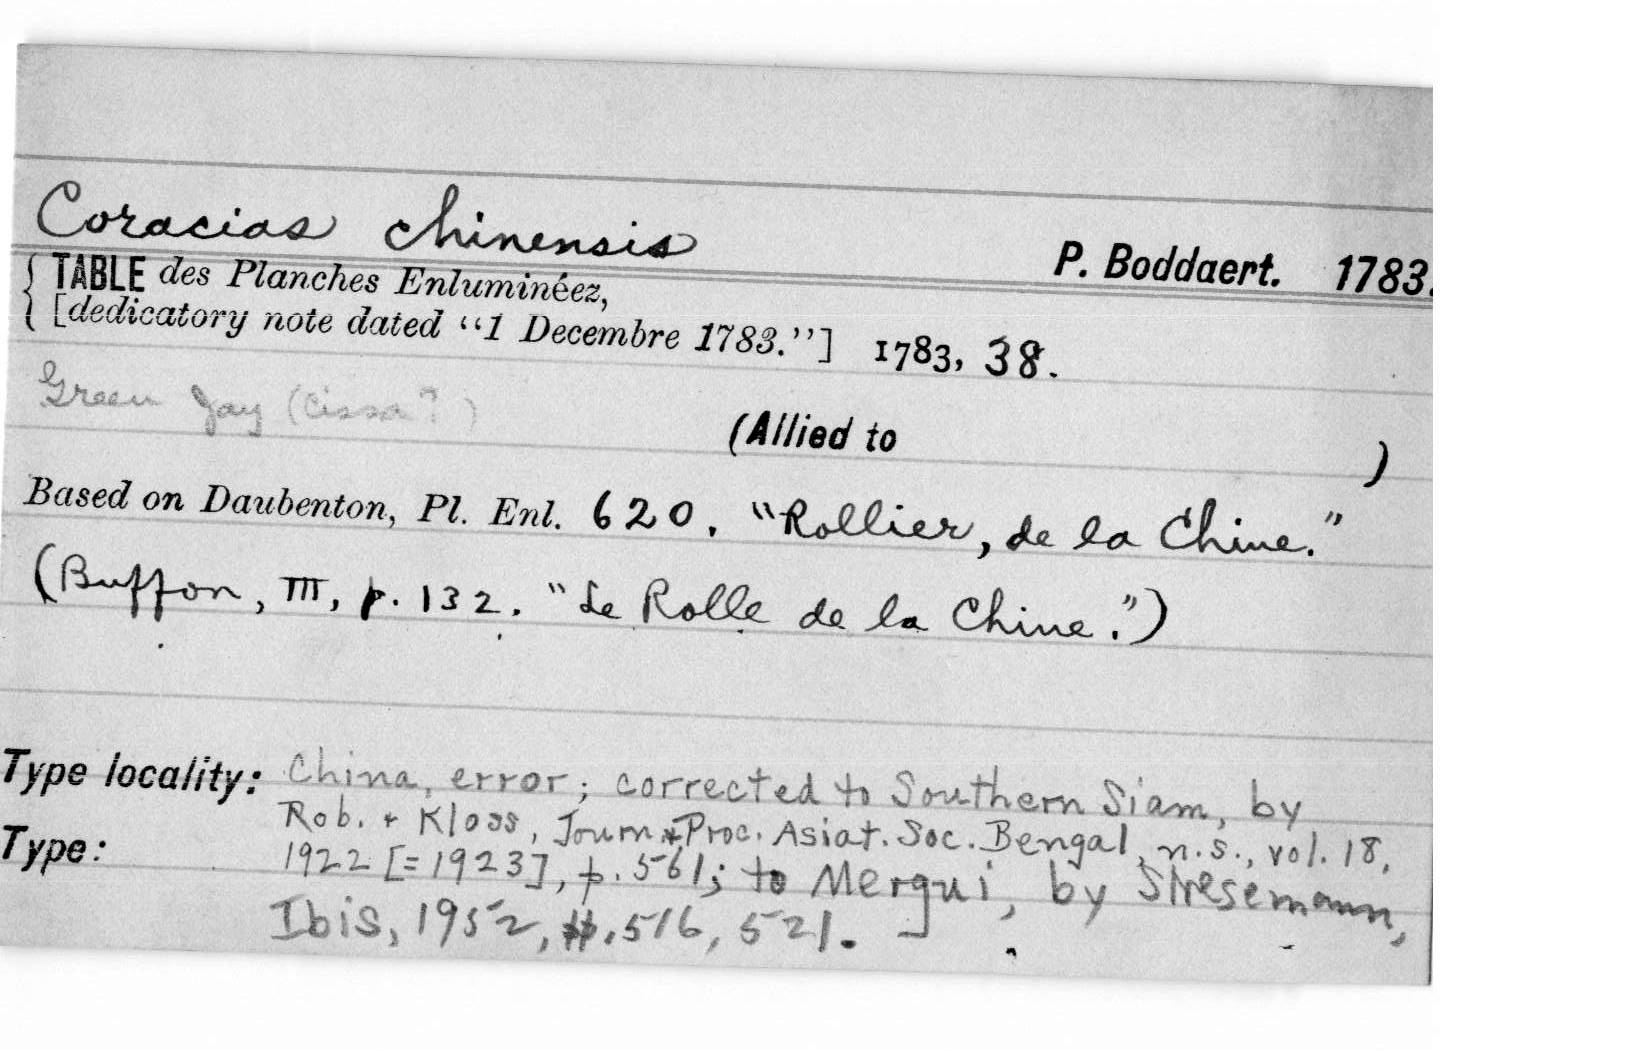 Coracias chinensis
P. Boddaert. 1783.
{ TABLE des Planches Enluminéez,
[dedicatory note dated "1 Decembre 1783."] 1783, 38.
Green Jay (Cissa?)
(Allied to )
Based on Daubenton, Pl. Enl. 620. "Rollier, de la Chine."
(Buffon, III, p. 132. "Le Rolle de la Chine.")
Type locality: China, error; corrected to Southern Siam, by
Rob. + Kloss, Journ. + Proc. Asiat. Soc. Bengal, n.s., vol. 18,
Type: 1922 [=1923], p. 561; to Mergui, by Stresemann,
Ibis, 1952, pp. 516, 521.